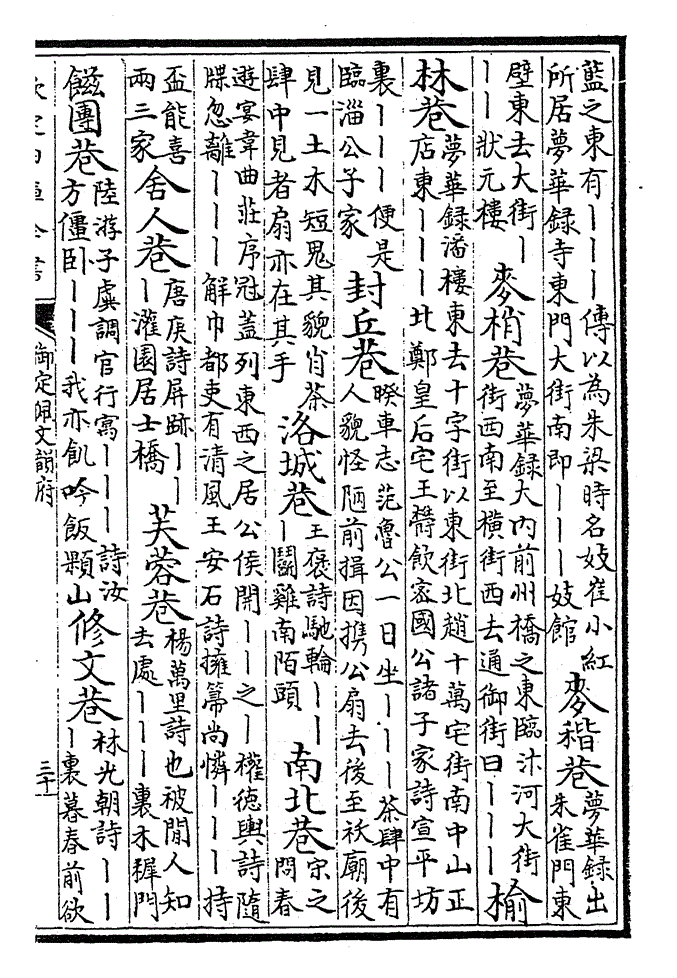 藍之東有丨丨丨傳以為朱梁時名妓崔小紅
所居夢華録寺東門大街南即丨丨丨妓館
麥稭巷
夢華録出
朱雀門東
壁東去大街丨
丨丨狀元樓
麥梢巷
夢華録大内前州橋之東臨汴河大街
街西南至横街西去通御街曰丨丨丨
榆
林巷
夢華録潘樓東去十字街以東街北趙十萬宅街南中山正
店東丨丨丨北鄭皇后宅王欎飲宻國公諸子家詩宣平坊
裏丨丨丨便是
臨淄公子家
封丘巷
睽車志范魯公一日坐丨丨丨茶肆中有
人貌怪陋前揖因携公扇去後至祅廟後
見一土木短鬼其貌肖茶
肆中見者扇亦在其手
洛城巷
王褒詩馳輪丨丨
丨鬭雞南陌頭
南北巷
宋之
問春
遊宴韋曲莊序冠蓋列東西之居公侯開丨丨之丨權徳輿詩隨
牒忽離丨丨丨解巾都吏有清風王安石詩擁篲尚憐丨丨丨持
盃能喜
兩三家
舍人巷
唐庚詩屏跡丨丨
丨灌園居士橋
芙蓉巷
楊萬里詩也被閒人知
去處丨丨丨裏木穉門
餈團巷
陸游子虡調官行寓丨丨丨詩汝
方僵卧丨丨丨我亦飢吟飯顆山
修文巷
林光朝詩丨丨
丨裏暮春前欲
欽定四庫全書
御定佩文韻府